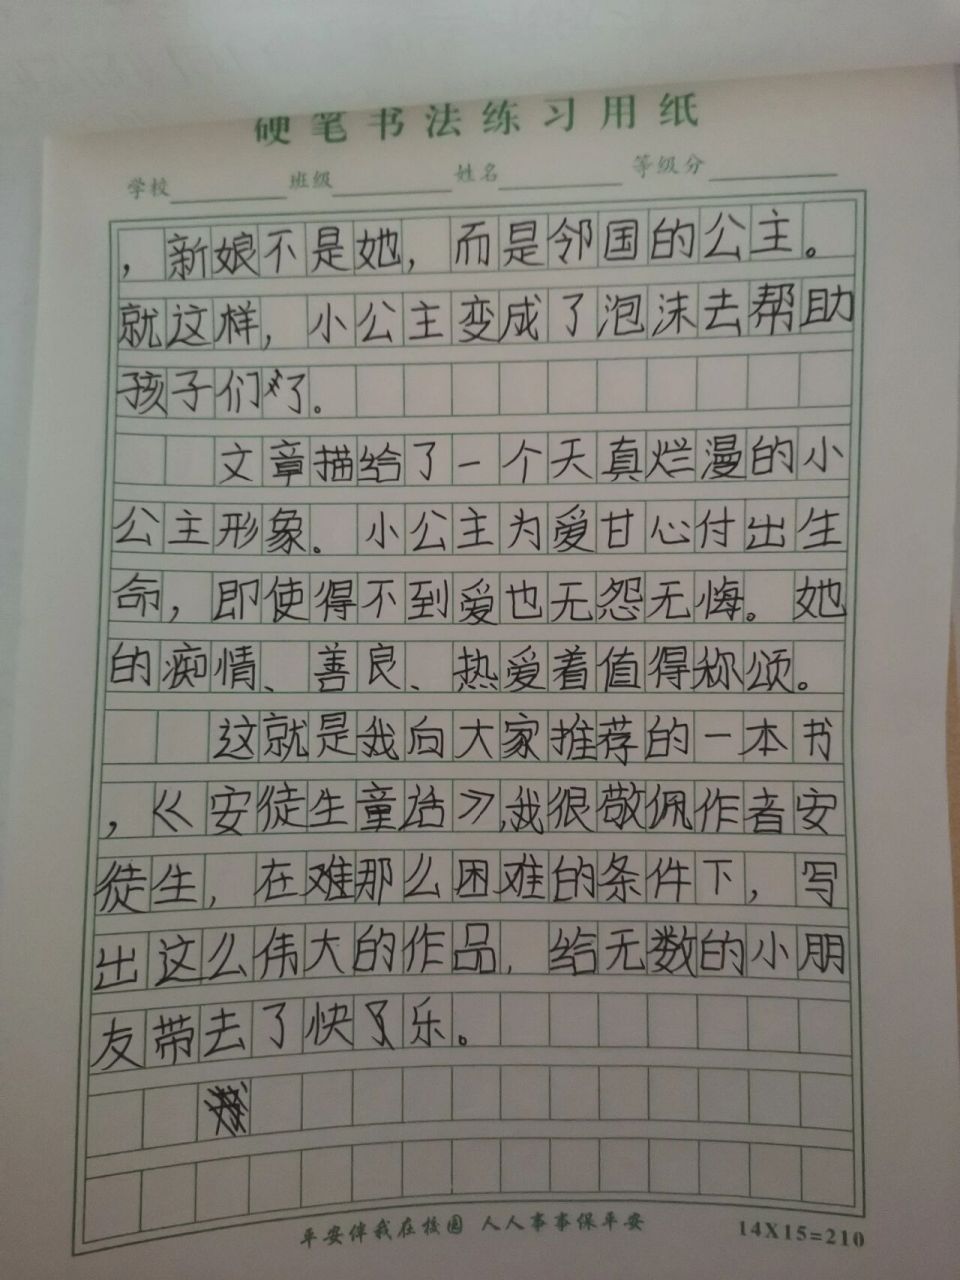 硬笔书法练习用纸
学校 班级 姓名 等级分
，新娘不是她，而是邻国的公主。
就这样，小公主变成了泡沫去帮助
孩子们了。
文章描给了一个天真烂漫的小
公主形象。小公主为爱甘心付出生
命，即使得不到爱也无怨无悔。她
的痴情、善良、热爱着值得称颂。
这就是我向大家推荐的一本书
，《安徒生童话》，我很敬佩作者安
徒生，在难那么困难的条件下，写
出这么伟大的作品，给无数的小朋
友带去了快乐。
平安伴我在校园 人人事事保平安
14X15=210